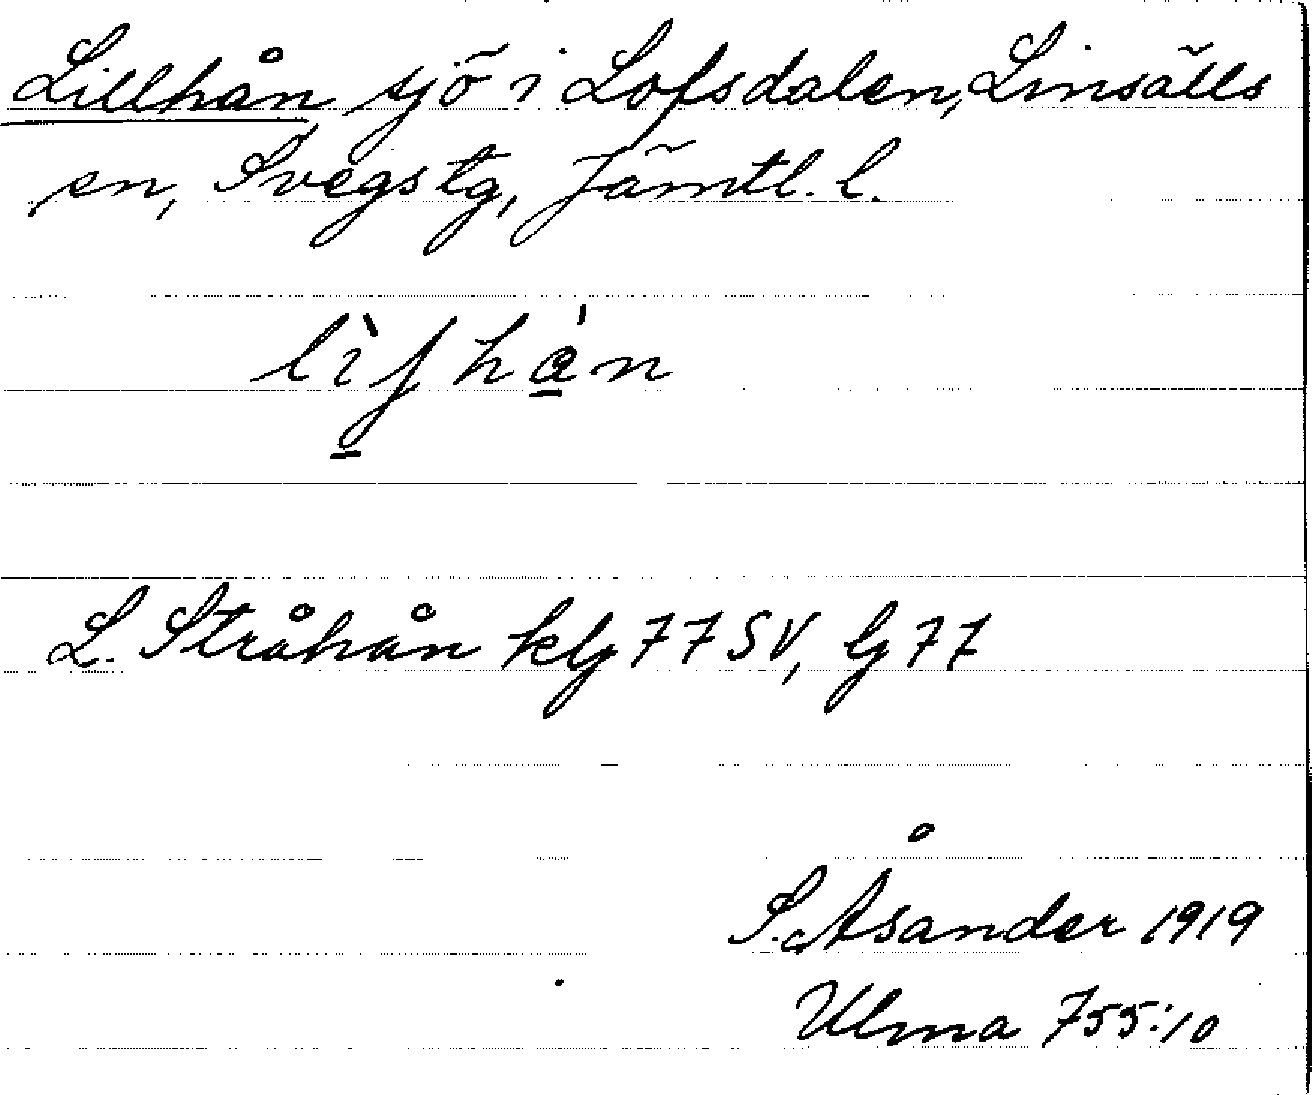 Lillhån, sjö i Lofsdalen, Linsälls
sn, Svegs tg, Jämtl. l.
L. Stråhån klg 77 SV, lg 77
S. Åsander 1919
Ulma 755:10